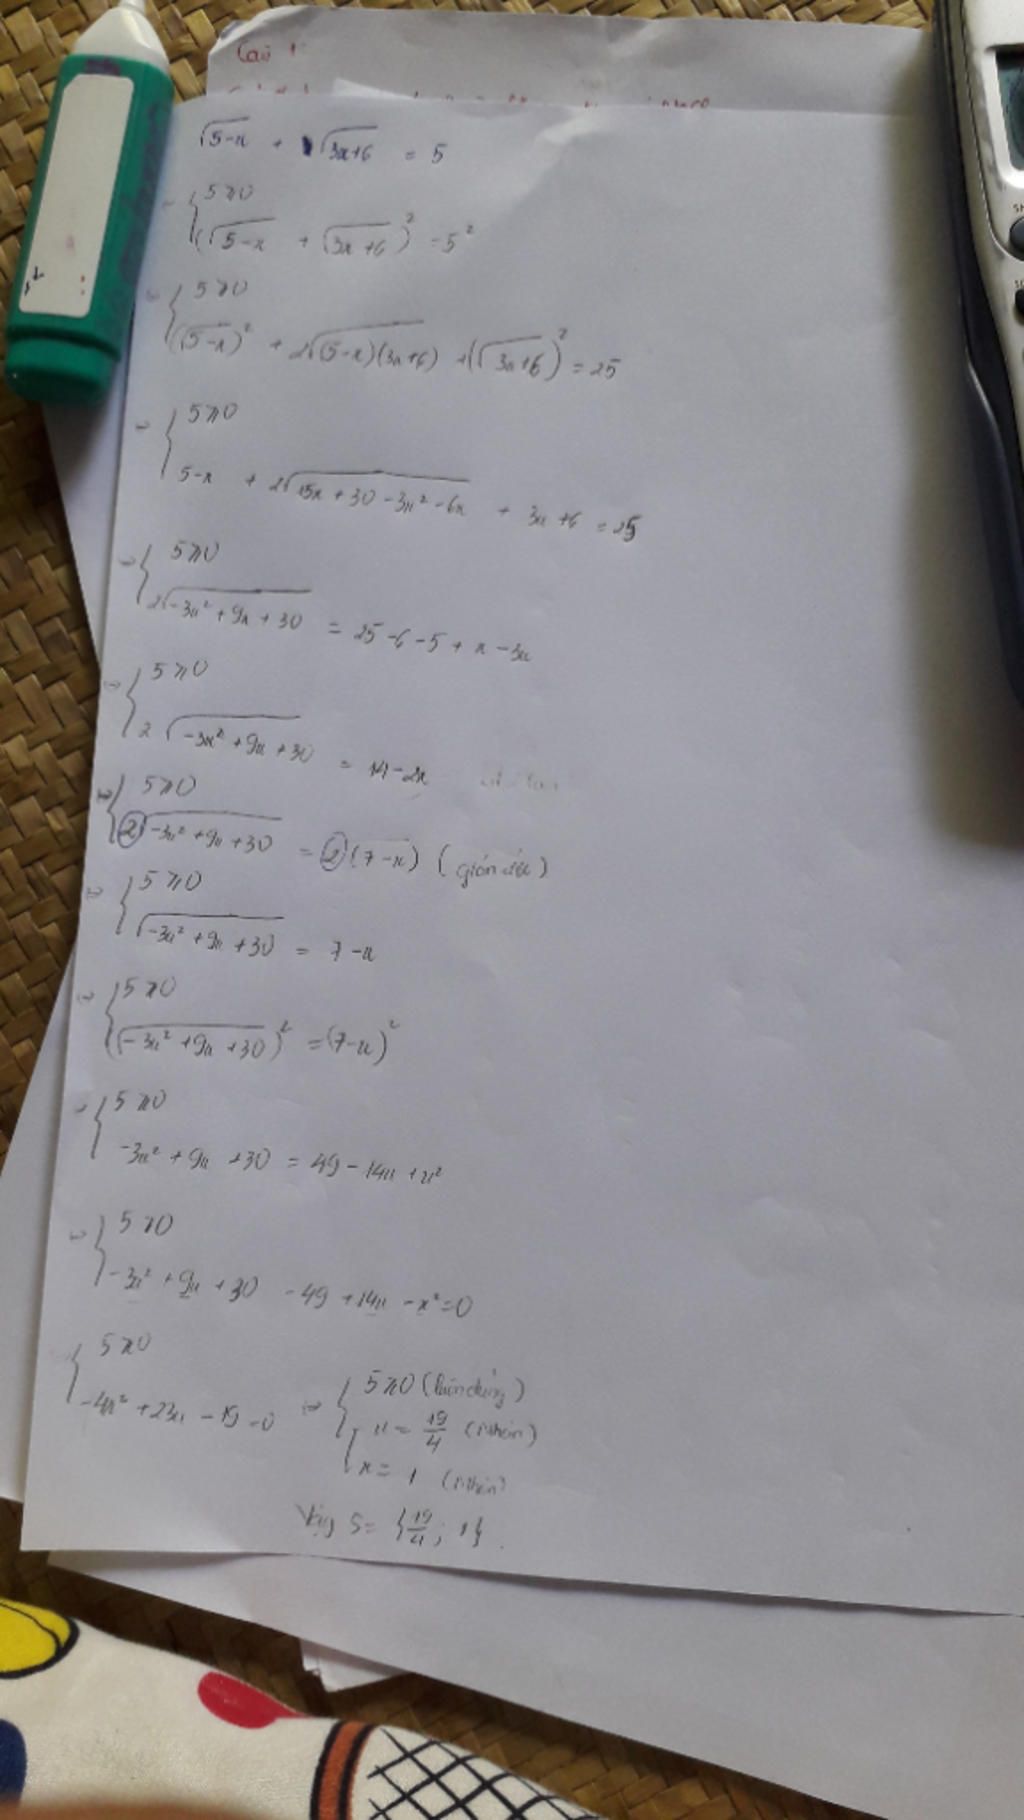 Câu 1:
√(5-x) + √(3x+6) = 5
⇔ { 5 ≥ 0
(√(5-x) + √(3x+6))² = 5²
⇔ { 5 ≥ 0
(√(5-x))² + 2√((5-x)(3x+6)) + (√(3x+6))² = 25
⇔ { 5 ≥ 0
5-x + 2√(15x + 30 - 3x² - 6x) + 3x + 6 = 25
⇔ { 5 ≥ 0
2√(-3x² + 9x + 30) = 25 - 6 - 5 + x - 3x
⇔ { 5 ≥ 0
2√(-3x² + 9x + 30) = 14 - 2x
⇔ { 5 ≥ 0
2√(-3x² + 9x + 30) = 2(7-x) (giản ước)
⇔ { 5 ≥ 0
√(-3x² + 9x + 30) = 7 - x
⇔ { 5 ≥ 0
(√(-3x² + 9x + 30))² = (7-x)²
⇔ { 5 ≥ 0
-3x² + 9x + 30 = 49 - 14x + x²
⇔ { 5 ≥ 0
-3x² + 9x + 30 - 49 + 14x - x² = 0
{ 5 ≥ 0
-4x² + 23x - 19 = 0
⇔ { 5 ≥ 0 (luôn đúng)
x = 19/4 (nhận)
x = 1 (nhận)
Vậy S = {19/4; 1}.